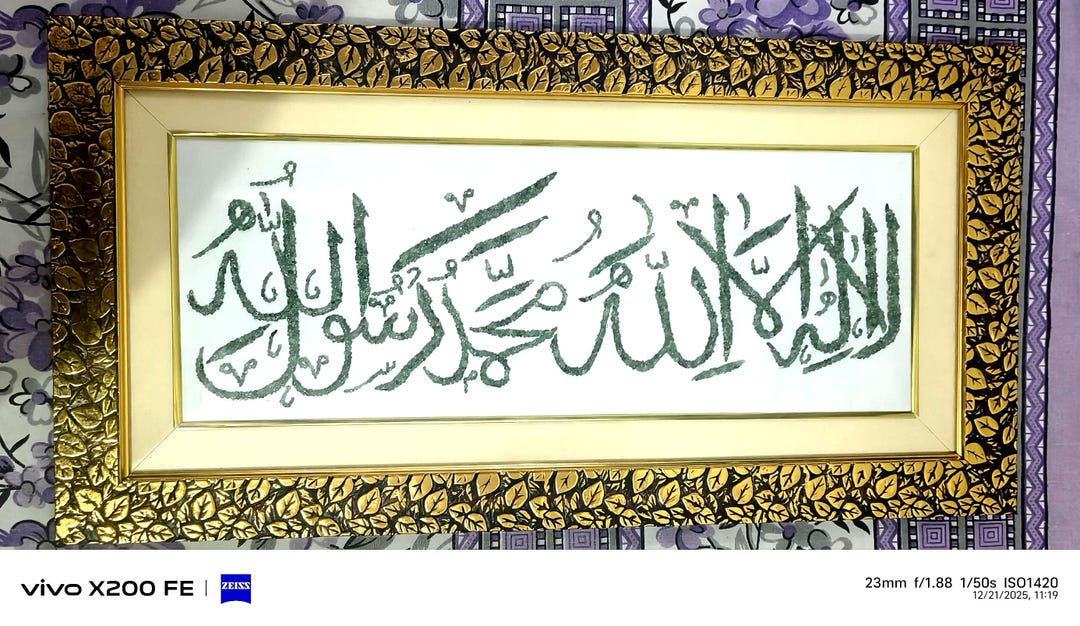 لا إله إلا الله محمد رسول الله
vivo X200 FE | ZEISS
23mm f/1.88 1/50s ISO1420
12/21/2025, 11:19